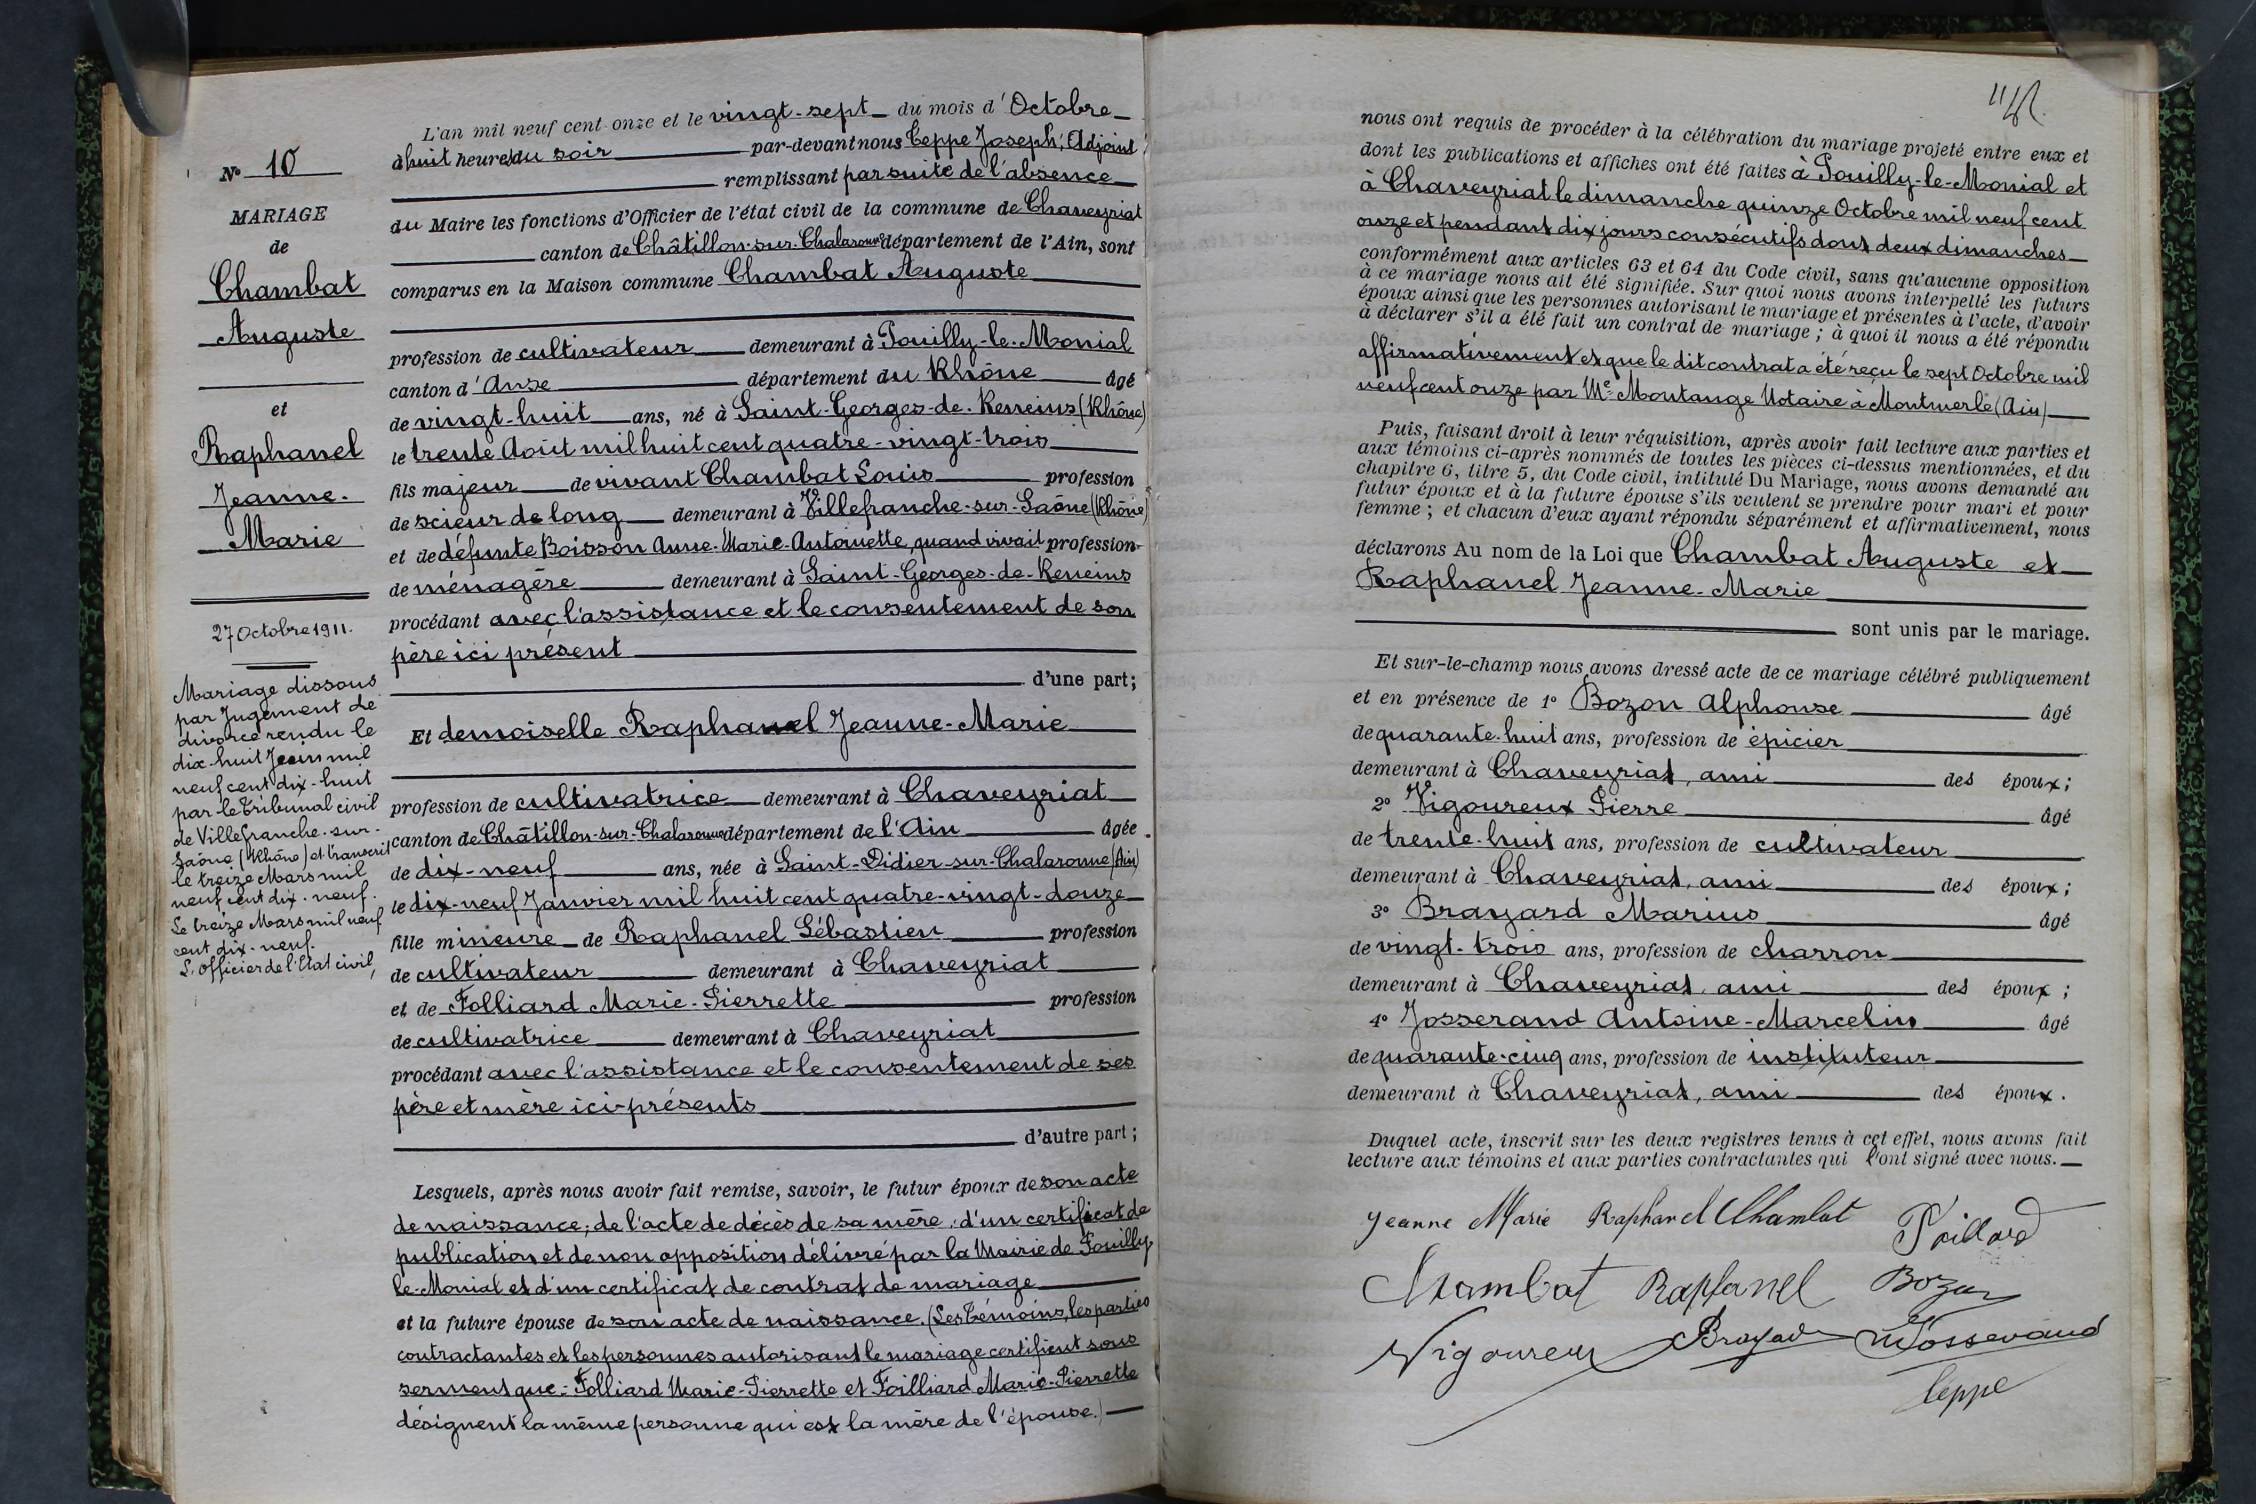 N° 10
MARIAGE
de
Chambat
Auguste
et
Raphanel
Jeanne-
Marie
27 Octobre 1911.
Mariage dissous
par Jugement de
divorce rendu le
dix-huit Juin mil
neuf cent dix-huit
par le Tribunal civil
de Villefranche-sur-
Saône (Rhône) et transcrit
le treize Mars mil
neuf cent dix-neuf.
Le treize Mars mil neuf
cent dix-neuf.
L'officier de l'Etat civil,
L'an mil neuf cent onze et le vingt-sept du mois d'Octobre
à huit heures du soir par-devant nous Ceppe Joseph, Adjoint
remplissant par suite de l'absence
du Maire les fonctions d'Officier de l'état civil de la commune de Chaveyriat
canton de Châtillon-sur-Chalaronne département de l'Ain, sont
comparus en la Maison commune Chambat Auguste
profession de cultivateur demeurant à Pouilly-le-Monial
canton d'Anse département du Rhône âgé
de vingt-huit ans, né à Saint-Georges-de-Reneins (Rhône)
le trente Août mil huit cent quatre-vingt-trois
fils majeur de vivant Chambat Louis profession
de scieur de long demeurant à Villefranche-sur-Saône (Rhône)
et de défunte Boisson Anne-Marie-Antoinette, quand vivait profession
de ménagère demeurant à Saint-Georges-de-Reneins
procédant avec l'assistance et le consentement de son
père ici présent
d'une part;
Et demoiselle Raphanel Jeanne-Marie
profession de cultivatrice demeurant à Chaveyriat
canton de Châtillon-sur-Chalaronne département de l'Ain âgée
de dix-neuf ans, née à Saint-Didier-sur-Chalaronne (Ain)
le dix-neuf Janvier mil huit cent quatre-vingt-douze
fille mineure de Raphanel Sébastien profession
de cultivateur demeurant à Chaveyriat
et de Folliard Marie-Pierrette profession
de cultivatrice demeurant à Chaveyriat
procédant avec l'assistance et le consentement de ses
père et mère ici présents
d'autre part;
Lesquels, après nous avoir fait remise, savoir, le futur époux de son acte
de naissance; de l'acte de décès de sa mère, d'un certificat de
publication et de non opposition délivré par la Mairie de Pouilly
le-Monial et d'un certificat de contrat de mariage
et la future épouse de son acte de naissance. (Les témoins, les parties
contractantes et les personnes autorisant le mariage certifient sous
serment que Folliard Marie-Pierrette et Foilliard Marie-Pierrette
désignent la même personne qui est la mère de l'épouse.)
nous ont requis de procéder à la célébration du mariage projeté entre eux et
dont les publications et affiches ont été faites à Pouilly-le-Monial et
à Chaveyriat le dimanche quinze Octobre mil neuf cent
onze et pendant dix jours consécutifs dont deux dimanches
conformément aux articles 63 et 64 du Code civil, sans qu'aucune opposition
à ce mariage nous ait été signifiée. Sur quoi nous avons interpellé les futurs
époux ainsi que les personnes autorisant le mariage et présentes à l'acte, d'avoir
à déclarer s'il a été fait un contrat de mariage; à quoi il nous a été répondu
affirmativement et que le dit contrat a été reçu le sept Octobre mil
neuf cent onze par Me Montange Notaire à Montmerle (Ain)
Puis, faisant droit à leur réquisition, après avoir fait lecture aux parties et
aux témoins ci-après nommés de toutes les pièces ci-dessus mentionnées, et du
chapitre 6, titre 5, du Code civil, intitulé Du Mariage, nous avons demandé au
futur époux et à la future épouse s'ils veulent se prendre pour mari et pour
femme; et chacun d'eux ayant répondu séparément et affirmativement, nous
déclarons Au nom de la Loi que Chambat Auguste et
Raphanel Jeanne-Marie
sont unis par le mariage.
Et sur-le-champ nous avons dressé acte de ce mariage célébré publiquement
et en présence de 1° Bozon Alphonse âgé
de quarante-huit ans, profession de épicier
demeurant à Chaveyriat, ami des époux;
2° Vigoureux Pierre âgé
de trente-huit ans, profession de cultivateur
demeurant à Chaveyriat, ami des époux;
3° Brayard Marius âgé
de vingt-trois ans, profession de charron
demeurant à Chaveyriat, ami des époux;
4° Josserand Antoine-Marcelin âgé
de quarante-cinq ans, profession de instituteur
demeurant à Chaveyriat, ami des époux.
Duquel acte, inscrit sur les deux registres tenus à cet effet, nous avons fait
lecture aux témoins et aux parties contractantes qui l'ont signé avec nous.
Jeanne Marie Raphanel Chambat Foillard
Chambat Raphanel Bozon
Vigoureux Brayard Josserand
Ceppe